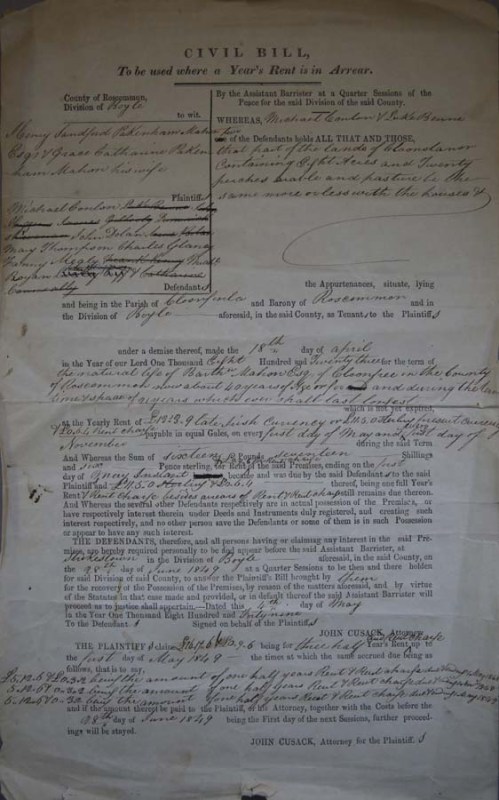 CIVIL BILL,
To be used where a Year's Rent is in Arrear.
County of Roscommon,
Division of Boyle
to wit.
Henry Sandford Pakenham Mahon
Esqr & Grace Catharine Paken
ham Mahon his wife
Plaintiffs
Michael Conlon
John Dolan
Mary Thompson Charles Glancy
Defendants
By the Assistant Barrister at a Quarter Sessions of the
Peace for the said Division of the said County.
WHEREAS, Michael Conlon & Luke Beirne
two of the Defendants holds ALL THAT AND THOSE,
that part of the lands of Cloonslanor
Containing Eight Acres and Twenty
perches arable and pasture be the
same more or less with the houses &
the Appurtenances, situate, lying
and being in the Parish of Cloonfinla and Barony of Roscommon and in
the Division of Boyle aforesaid, in the said County, as Tenants to the Plaintiffs
under a demise thereof, made the 18th day of April
in the Year of our Lord One Thousand Eight Hundred and Twenty three for the term of
the natural life of Barth Mahon Esq. of Clonfree in the County
of Roscommon now about 40 years of age or for and during the
time & space of 21 years which ever shall last longest
which is not yet expired,
at the Yearly Rent of late Irish Currency
Rent charge payable in equal Gales, on every first day of May and first day of
November during the said Term
And Whereas the Sum of sixteen Pounds seventeen Shillings
and six Pence sterling, for Rent of the said Premises, ending on the first
day of May Instant and was due by the said Defendants to the said
Plaintiff and thereof, being one full Year's
Rent & Rent charge besides arrears of Rent & Rent charge still remains due thereon.
And Whereas the several other Defendants respectively are in actual possession of the Premises, or
have respectively interest therein under Deeds and Instruments duly registered, and creating such
interest respectively, and no other person save the Defendants or some of them is in such Possession
or appear to have any such interest.
THE DEFENDANTS, therefore, and all persons having or claiming any Interest in the said Pre-
mises, are hereby required personally to be and appear before the said Assistant Barrister, at
Strokestown in the Division of Boyle aforesaid, in the said County, on
the 28th day of June 1849 at a Quarter Sessions to be then and there holden
for said Division of said County, to answer the Plaintiff's Bill brought by them
for the recovery of the Possession of the Premises, by reason of the matters aforesaid, and by virtue
of the Statutes in that case made and provided, or in default thereof the said Assistant Barrister will
proceed as to justice shall appertain.—Dated this 4th day of May
in the Year One Thousand Eight Hundred and Forty nine
To the Defendant Signed on behalf of the Plaintiffs
JOHN CUSACK, Attorney
THE PLAINTIFFS claim being three half Year's Rent up to
the first day of May 1849 the times at which the same accrued due being as
follows, that is to say,
being the amount of one half years Rent & Rent charge due
being the amount of one half years Rent & Rent charge due
being the amount of one half years Rent & Rent charge due
and if the amount thereof be paid to the Plaintiff, or his Attorney, together with the Costs before the
28th day of June 1849 being the First day of the next Sessions, further proceed-
ings will be stayed.
JOHN CUSACK, Attorney for the Plaintiffs